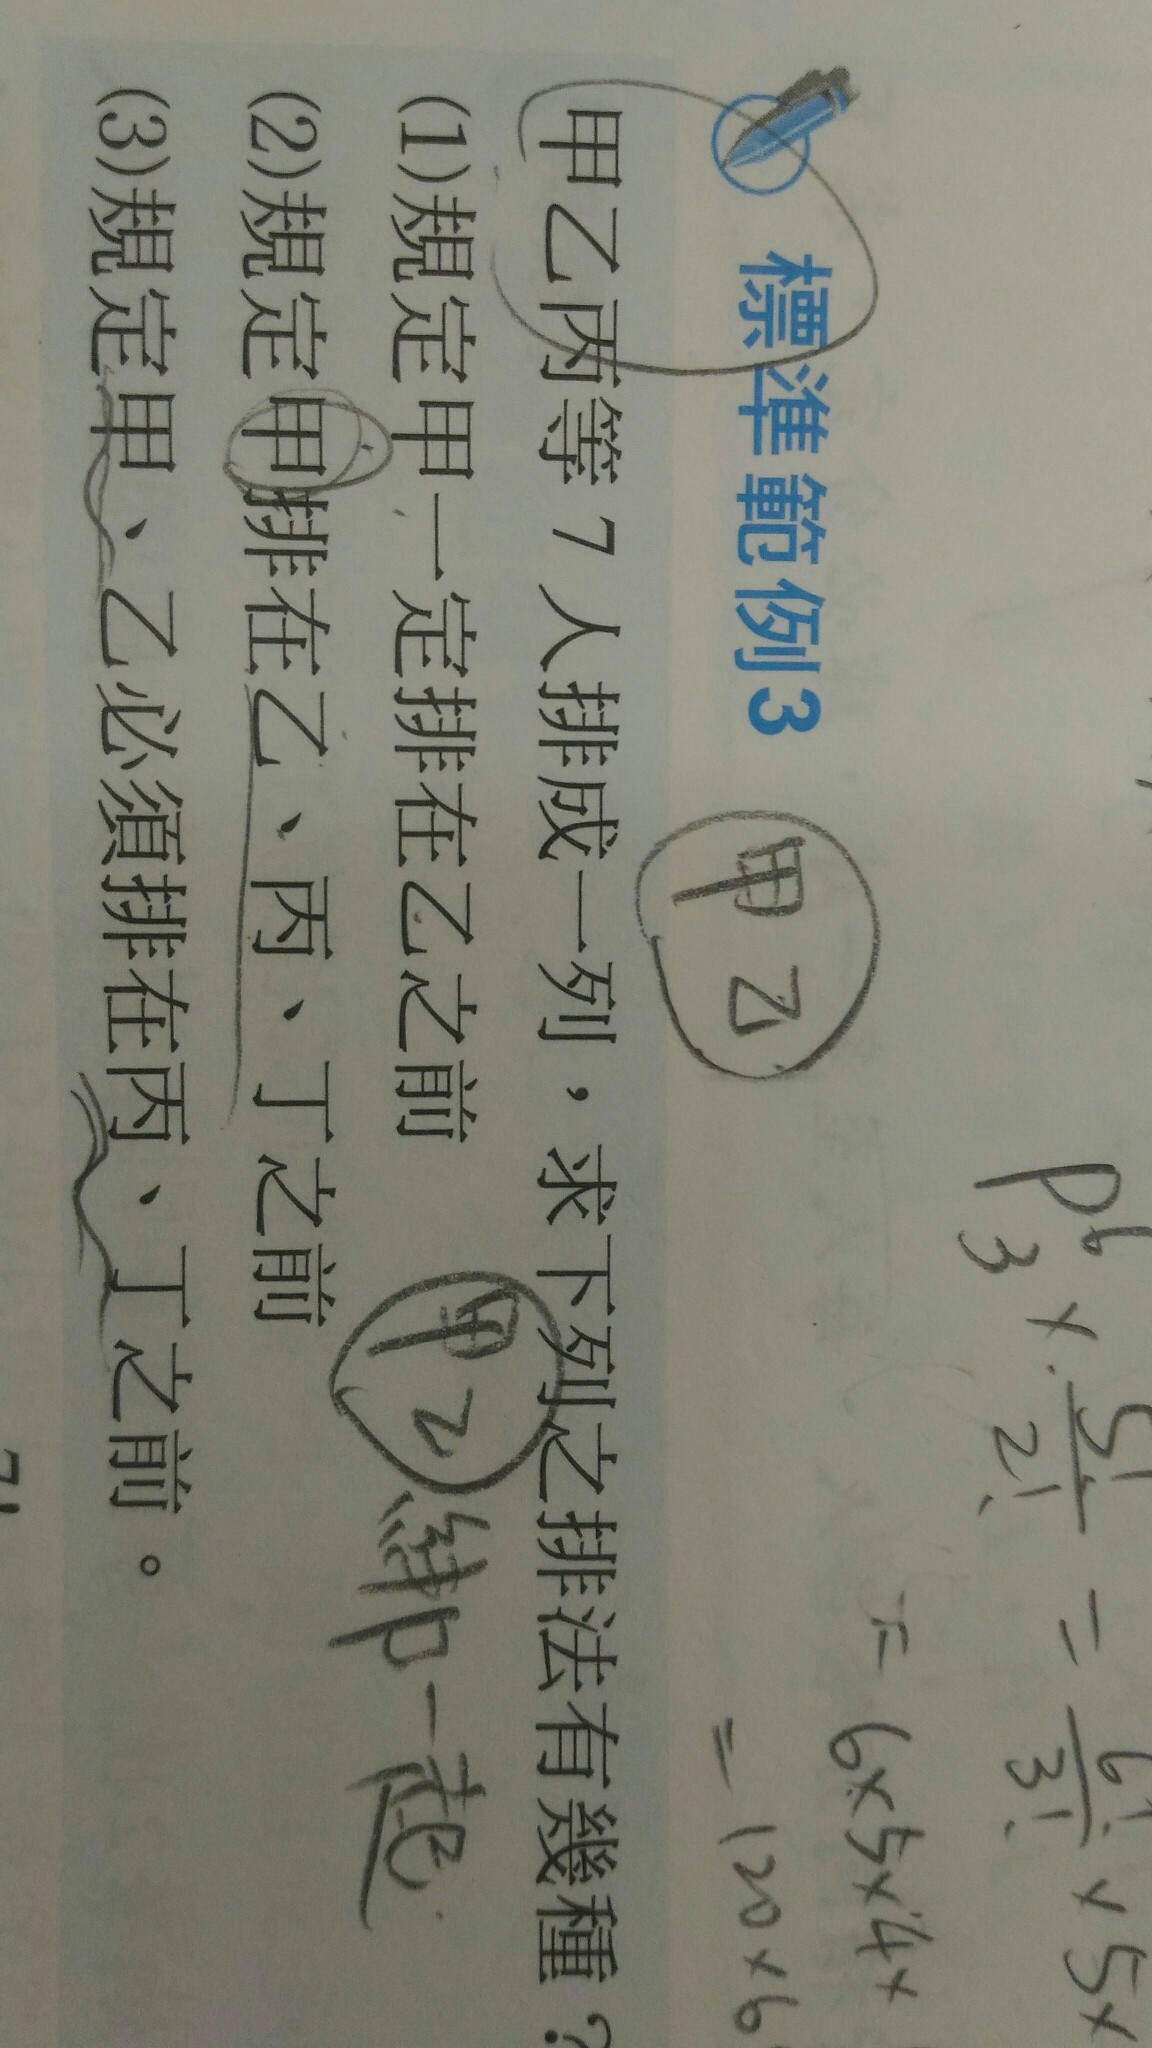 P⁶₃ × 5!/2! = 6!/3! × 5×
= 6×5×4×
= 120×6
標準範例3
甲乙
甲乙丙等 7 人排成一列，求下列之排法有幾種？
(1)規定甲一定排在乙之前
甲乙綁一起
(2)規定甲排在乙、丙、丁之前
(3)規定甲、乙必須排在丙、丁之前。